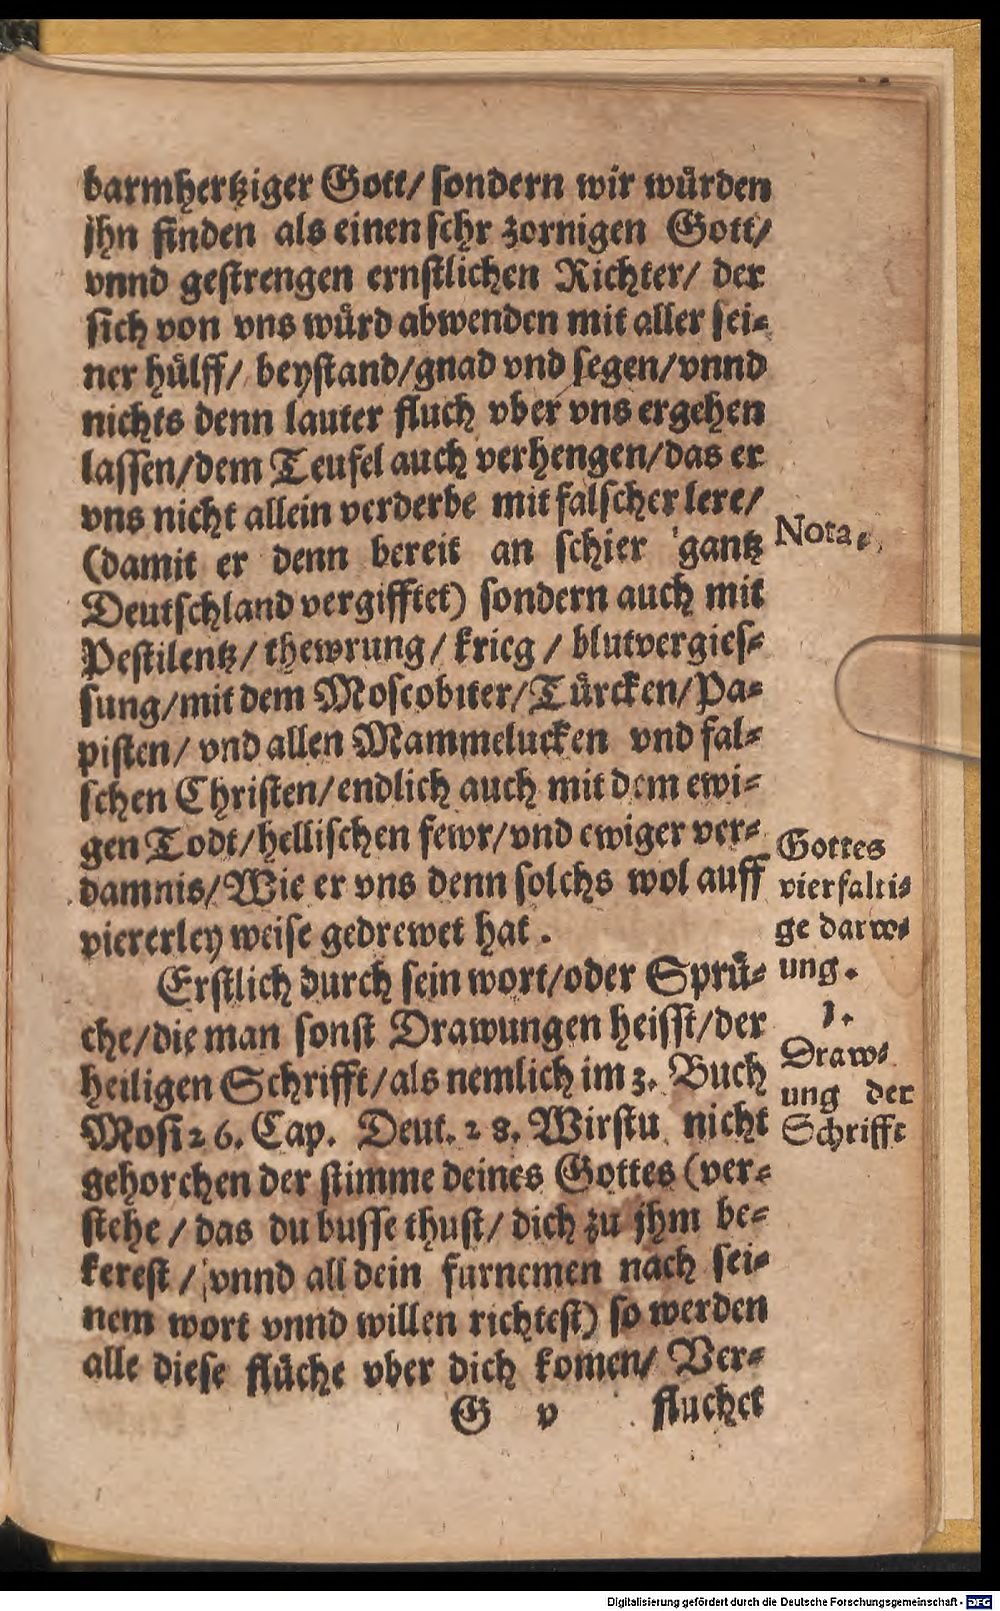 barmhertziger Gott/ sondern wir würden
jhn finden als einen sehr zornigen Gott/
vnnd gestrengen ernstlichen Richter/ der
sich von vns würd abwenden mit aller sei-
ner hülff/ beystand/gnad vnd segen/vnnd
nichts denn lauter fluch vber vns ergehen
lassen/dem Teufel auch verhengen/das er
vns nicht allein verderbe mit falscher lere/
(damit er denn bereit an schier gantz
Deutschland vergifftet) sondern auch mit
Pestilentz/ thewrung/ krieg/ blutvergies-
sung/mit dem Moscobiter/Türcken/Pa-
pisten/ vnd allen Mammelucken vnd fal-
schen Christen/endlich auch mit dem ewi-
gen Todt/hellischen fewr/vnd ewiger ver-
damnis/Wie er vns denn solchs wol auff
viererley weise gedrewet hat.
Erstlich durch sein wort/oder Sprü-
che/die man sonst Drawungen heisst/der
heiligen Schrifft/als nemlich im 3. Buch
Mosi 26. Cap. Deut. 28. Wirstu nicht
gehorchen der stimme deines Gottes (ver-
stehe/ das du busse thust/ dich zu jhm be-
kerest/ vnnd all dein furnemen nach sei-
nem wort vnnd willen richtest) so werden
alle diese flüche vber dich komen/ Ver-
G v fluchet
Nota.
Gottes
vierfalti-
ge darw-
ung.
1.
Draw-
ung der
Schrifft
Digitalisierung gefördert durch die Deutsche Forschungsgemeinschaft - DFG